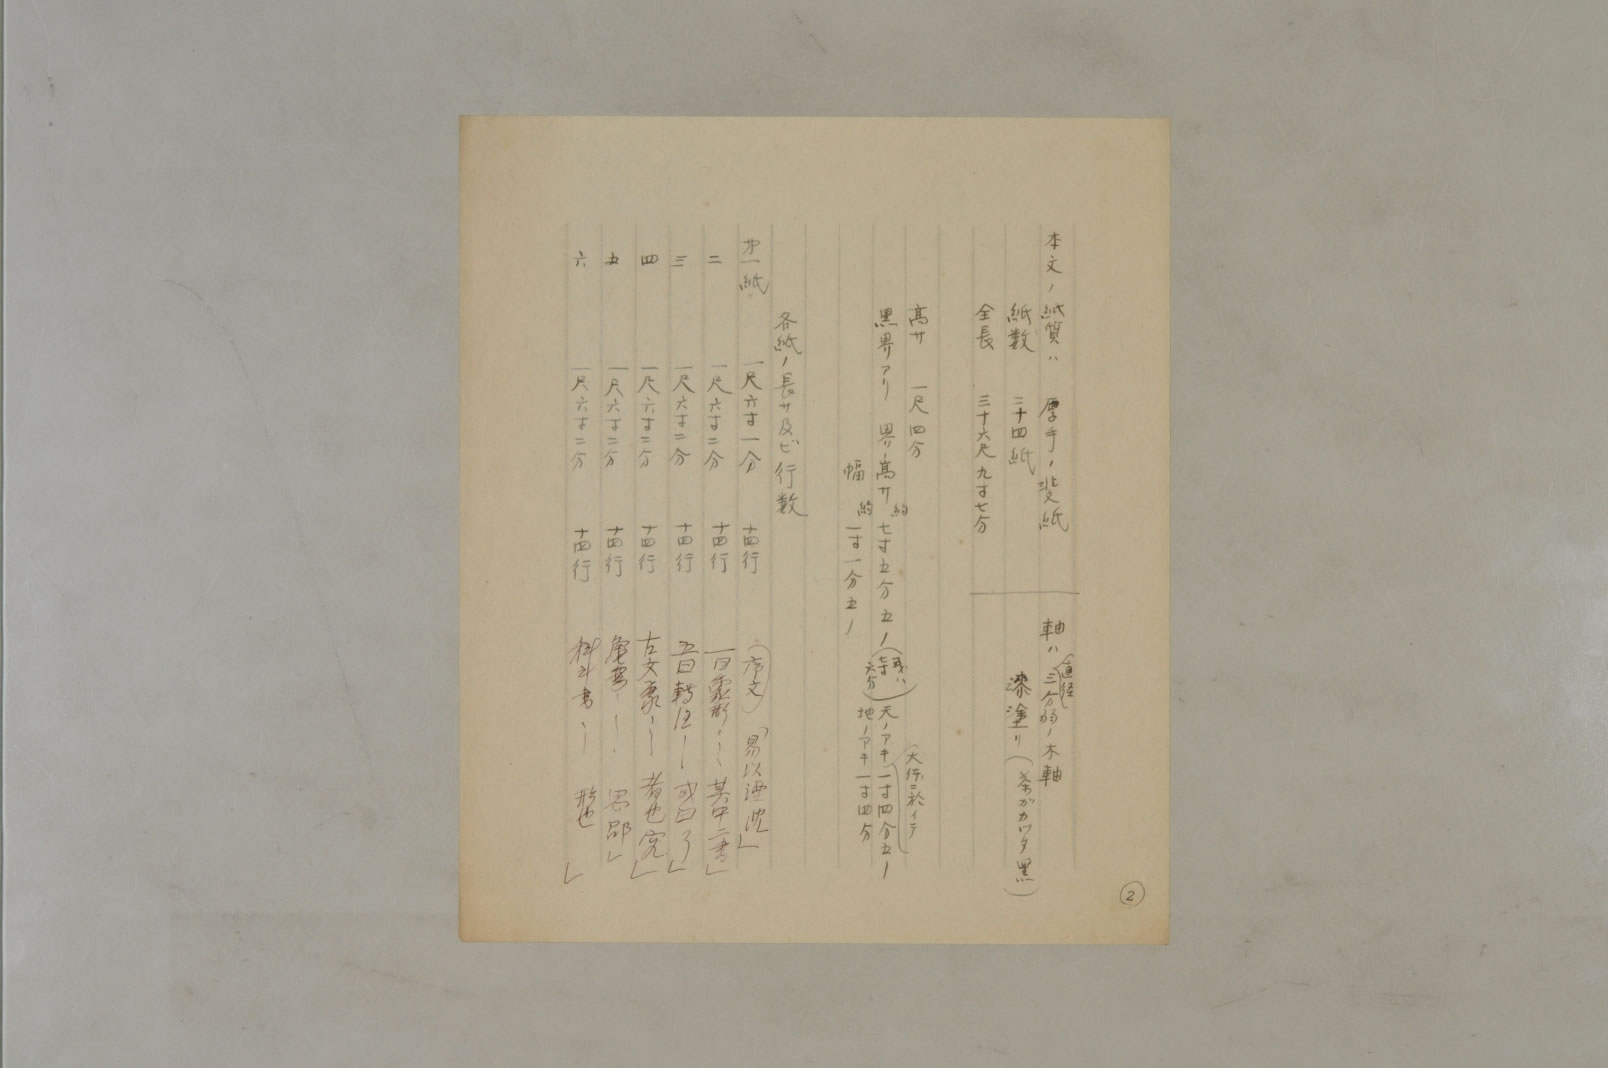 本文ノ紙質ハ 厚手ノ斐紙
紙数 二十四紙
全長 三十六尺九寸七分
軸ハ直径三分弱ノ木軸
漆塗リ(茶ガカツタ黒)
高サ 一尺四分
黒界アリ 界ノ高サ 約七寸五分五ノ(或ハ七寸六分)
幅 約一寸一分五ノ
(大体ニ於イテ
天ノアキ 一寸四分五ノ
地ノアキ 一寸四分
各紙ノ長サ及ビ行数
第一紙 一尺六寸一分 十四行 (序文) 易以湮沈」
二 一尺六寸二分 十四行 一曰 其中二書」
三 一尺六寸二分 十四行 五曰轉注〜 或曰了」
四 一尺六寸二分 十四行 古文篆〜 者也」
五 一尺六寸二分 十四行
六 一尺六寸二分 十四行 科斗書〜 形也」
②